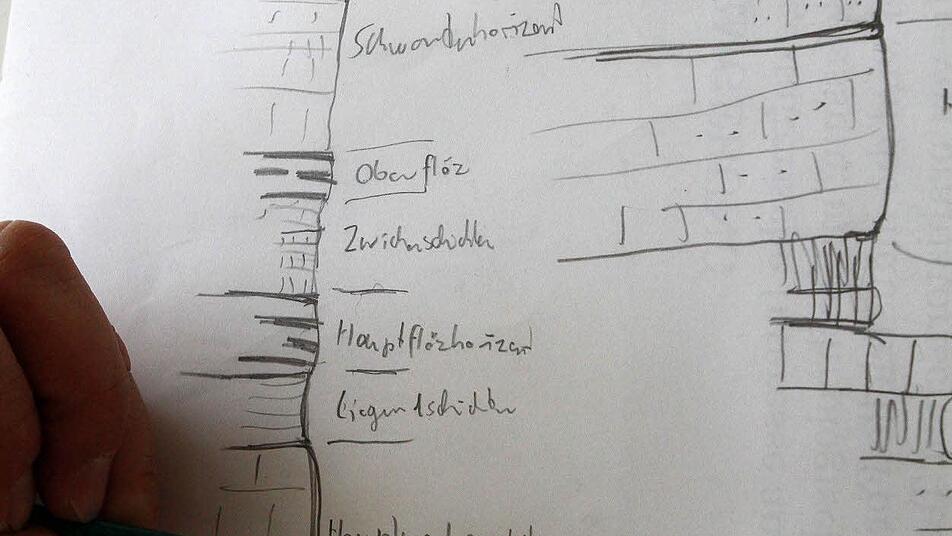 Schwandnhorizont
Oberflöz
Zwischenschichten
Hauptflözhorizont
Liegendschichten